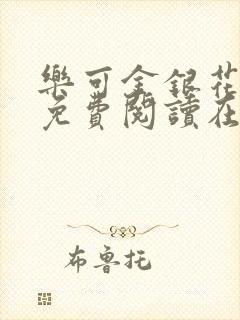 樂可金銀花
免費閱讀在
布魯托